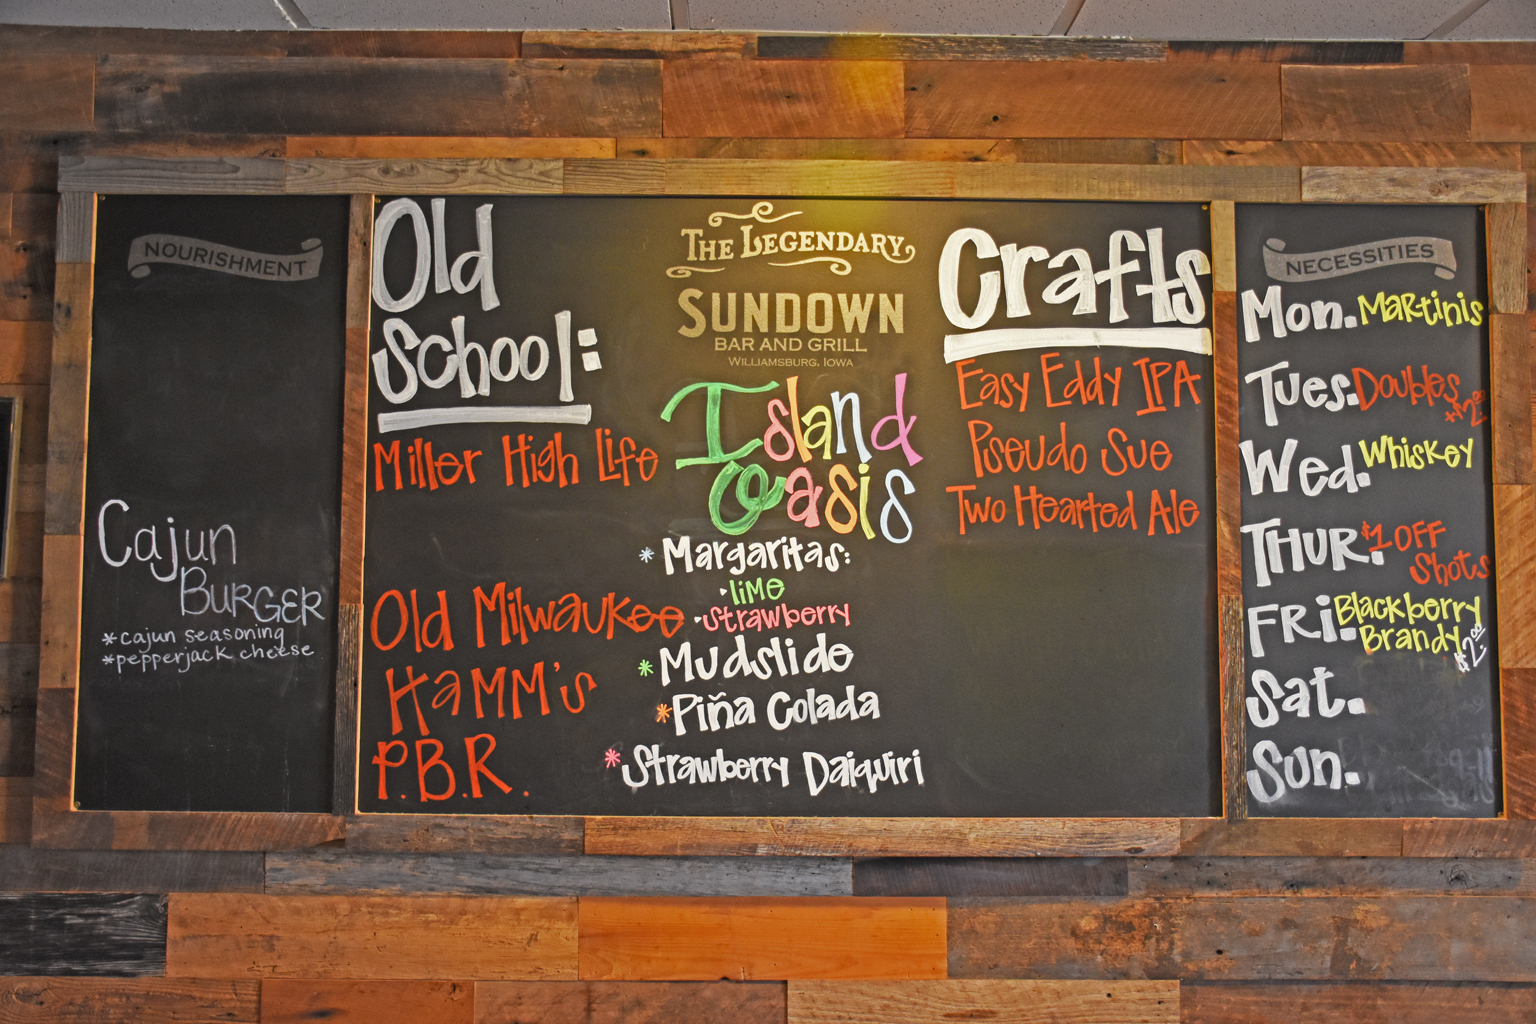 NOURISHMENT
Cajun
BURGER
*cajun seasoning
*pepperjack cheese
Old
School:
Miller High Life
Old Milwaukee
HaMM's
P.B.R.
THE LEGENDARY
SUNDOWN
BAR AND GRILL
WILLIAMSBURG, IOWA
Island
Oasis
*Margaritas:
·liME
·Strawberry
*Mudslide
*Piña Colada
*Strawberry Daiquiri
Crafts
Easy Eddy IPA
Pseudo Sue
Two Hearted Ale
NECESSITIES
Mon. Martinis
Tues. Doubles
+$2.00
Wed. Whiskey
THUR. $1 OFF
Shots
FRi. Blackberry
Brandy
$2.00
Sat.
Sun.